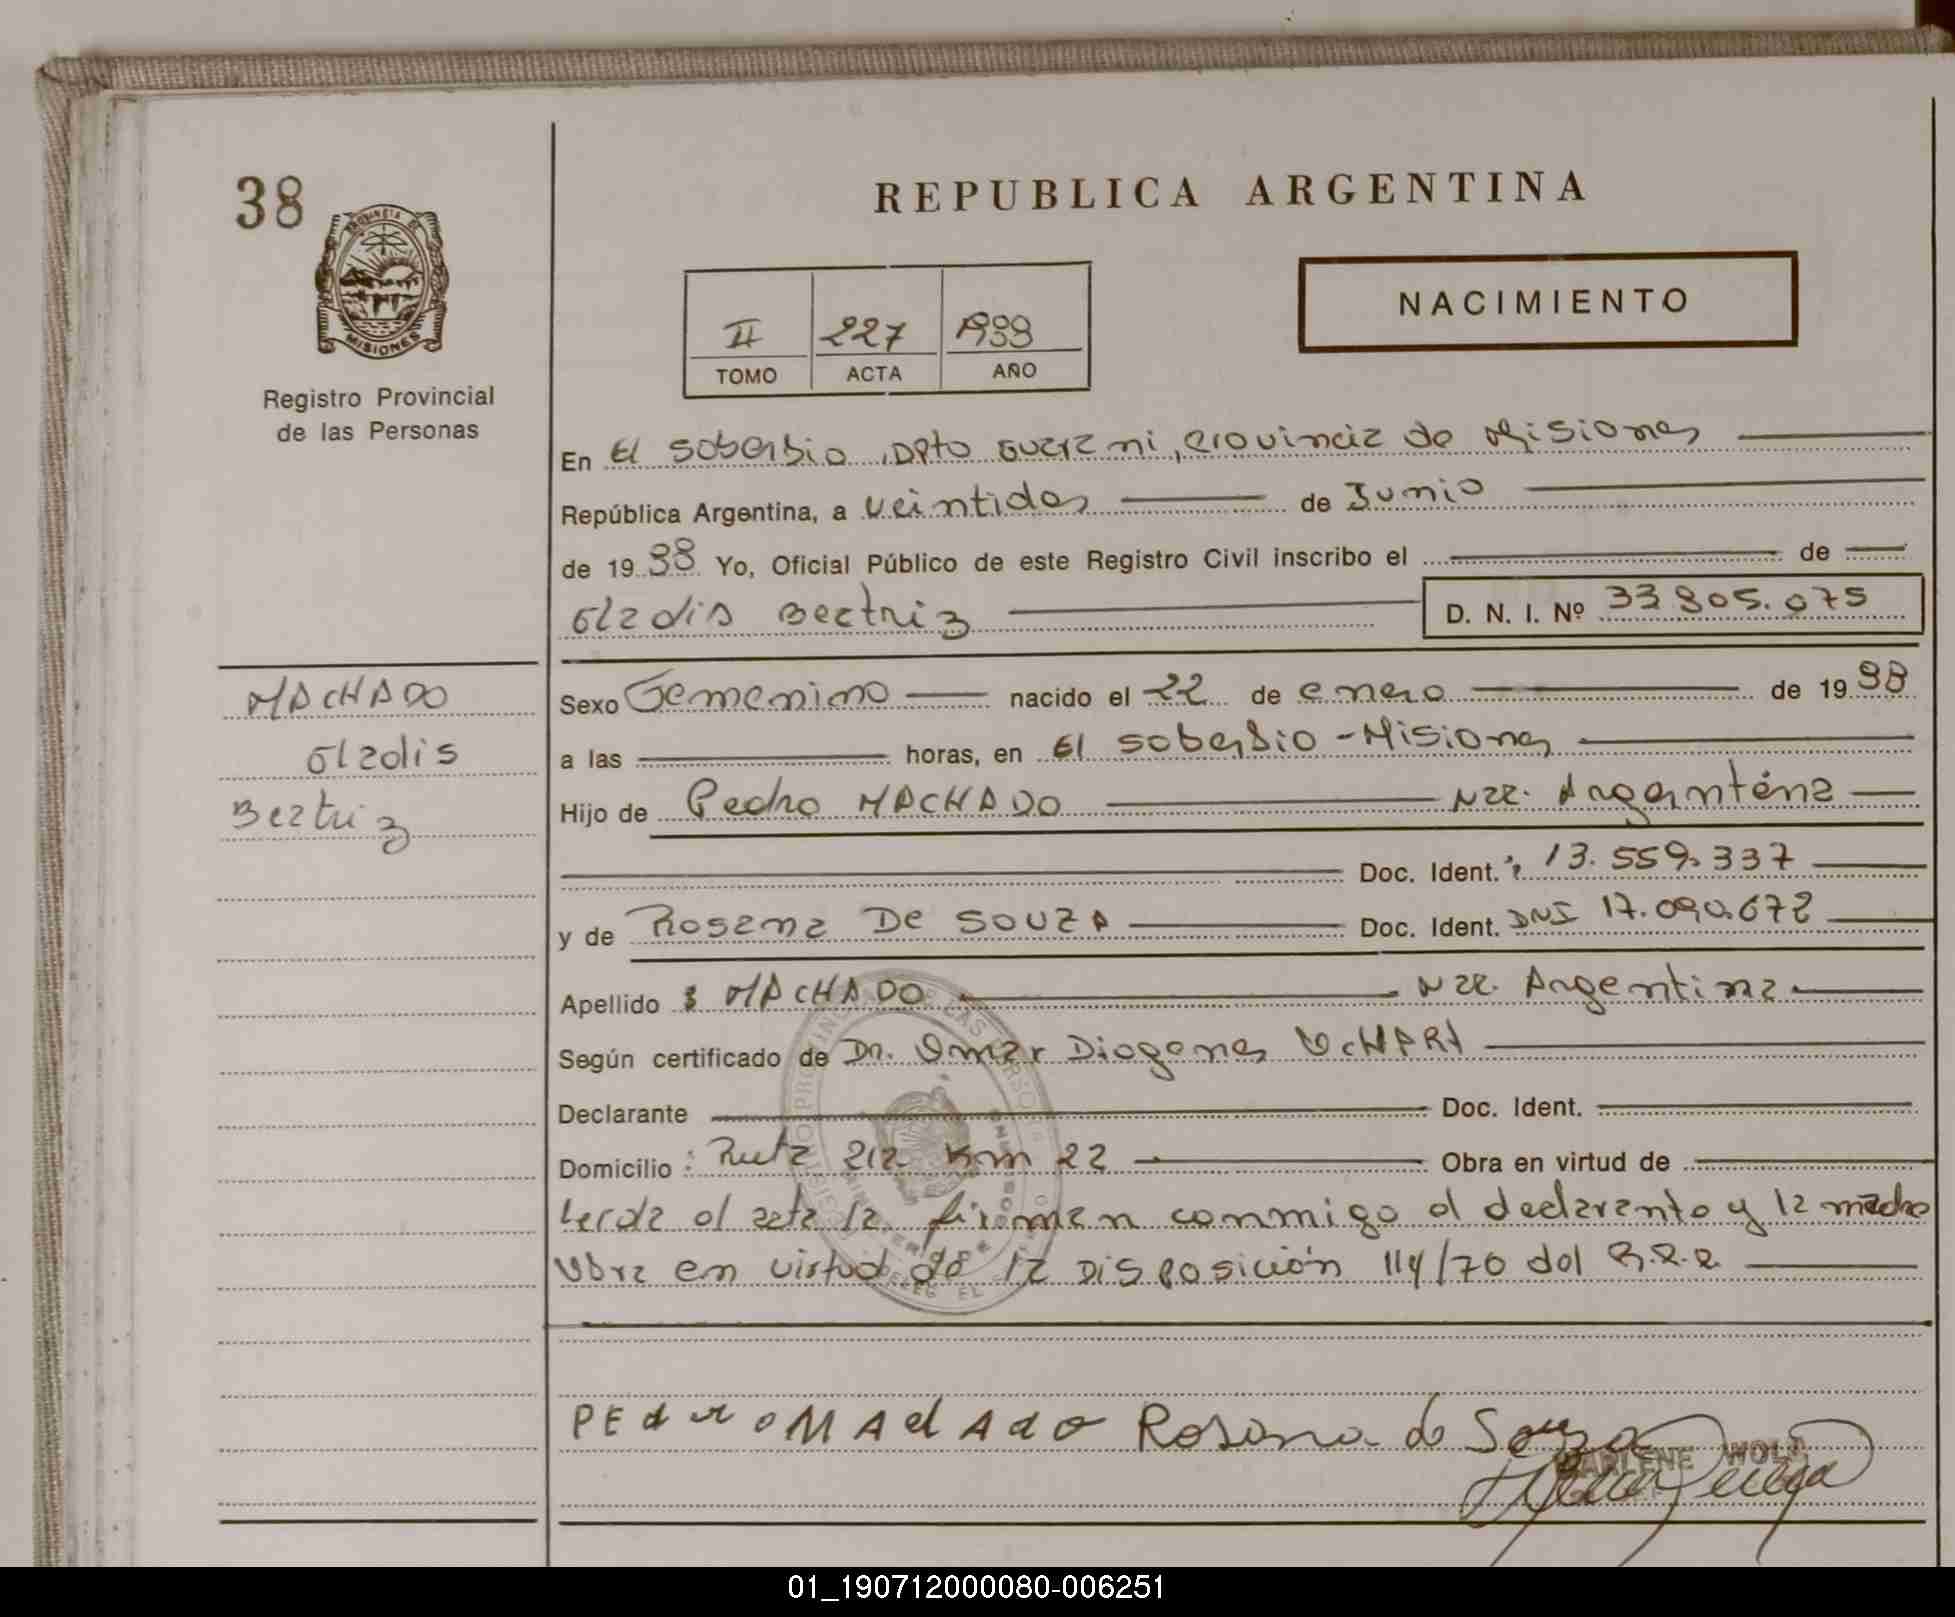 38
PROVINCIA DE
MISIONES
Registro Provincial
de las Personas
REPUBLICA ARGENTINA
NACIMIENTO
II 227
TOMO ACTA AÑO
En El Soberbio, Dpto Guarani, Provincia de Misiones
República Argentina, a veintidos de Junio
de 19 Yo, Oficial Público de este Registro Civil inscribo el de
Gladis Beatriz D. N. I. Nº
MACHADO
Gladis
Beatriz
Sexo Femenino nacido el 22 de enero de 19
a las horas, en El Soberbio - Misiones
Hijo de Pedro MACHADO Nac. Argentina
Doc. Ident. 13.559.337
y de Rosana De SOUZA Doc. Ident. DNI 17.090.672
Apellido : MACHADO Nac. Argentina
Según certificado de Dr. Omar Diogenes
Declarante Doc. Ident.
Domicilio : Ruta 212 Km 22 Obra en virtud de
Leida el acta la firman conmigo el declarante y la madre
Obra en virtud de la Disposición 114/70 del
PEdro MAcHAdo Rosana de Souza
MARLENE WOLL
01_190712000080-006251